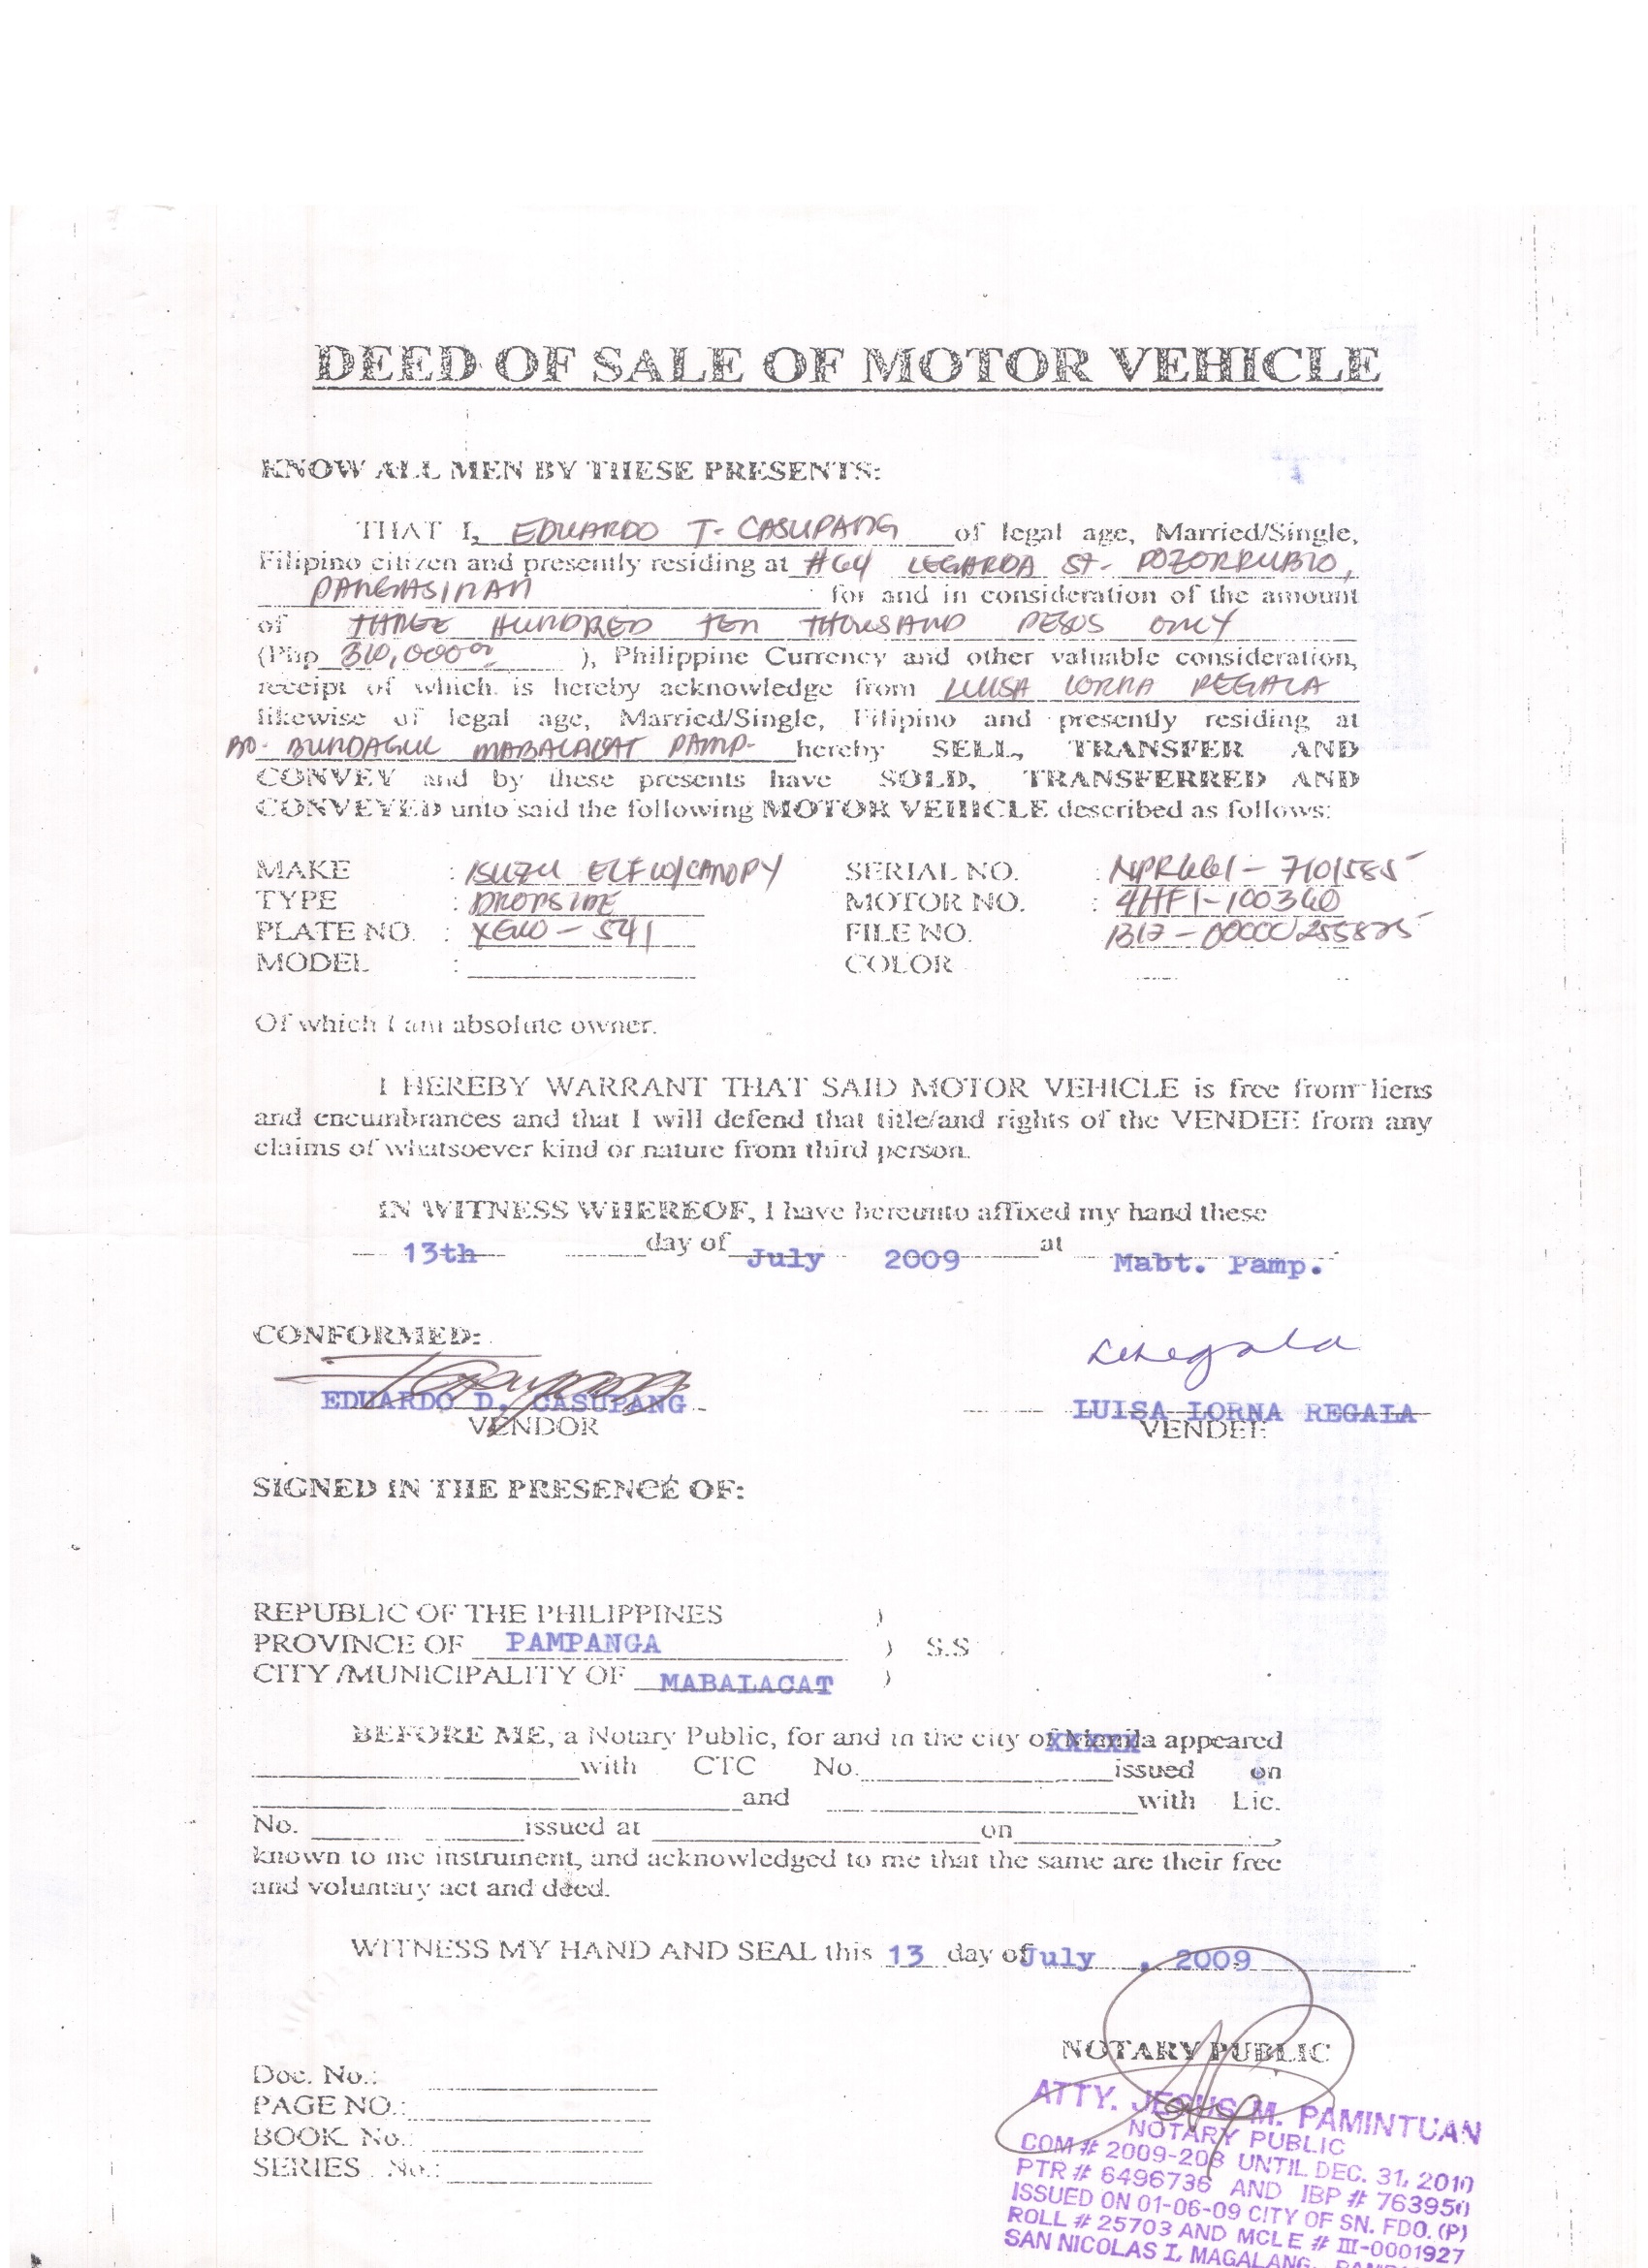 DEED OF SALE OF MOTOR VEHICLE
KNOW ALL MEN BY THESE PRESENTS:
THAT I, EDUARDO T. CASUPANG of legal age, Married/Single,
Filipino citizen and presently residing at #64 LEGARDA ST. POZORRUBIO,
PANGASINAN for and in consideration of the amount
of THREE HUNDRED TEN THOUSAND PESOS ONLY
(Php 310,000 ), Philippine Currency and other valuable consideration,
receipt of which is hereby acknowledge from LUISA LORNA REGALA
likewise of legal age, Married/Single, Filipino and presently residing at
BO. BUNDAGUL MABALACAT PAMP. hereby SELL, TRANSFER AND
CONVEY and by these presents have SOLD, TRANSFERRED AND
CONVEYED unto said the following MOTOR VEHICLE described as follows:
MAKE : ISUZU ELF W/CANOPY SERIAL NO. : NPR661-7101585
TYPE : DROPSIDE MOTOR NO. : 4HF1-100360
PLATE NO. : XGW-541 FILE NO.
MODEL : COLOR
Of which I am absolute owner.
I HEREBY WARRANT THAT SAID MOTOR VEHICLE is free from liens
and encumbrances and that I will defend that title/and rights of the VENDEE from any
claims of whatsoever kind or nature from third person.
IN WITNESS WHEREOF, I have hereunto affixed my hand these
13th day of July 2009 at Mabt. Pamp.
CONFORMED:
EDUARDO D. CASUPANG LUISA LORNA REGALA
VENDOR VENDEE
SIGNED IN THE PRESENCE OF:
REPUBLIC OF THE PHILIPPINES )
PROVINCE OF PAMPANGA ) S.S
CITY/MUNICIPALITY OF MABALACAT )
BEFORE ME, a Notary Public, for and in the city of Manila appeared
with CTC No. issued on
and with Lic.
No. issued at on ,
known to me instrument, and acknowledged to me that the same are their free
and voluntary act and deed.
WITNESS MY HAND AND SEAL this 13 day of July , 2009
NOTARY PUBLIC
Doc. No.:
PAGE NO.:
BOOK No.:
SERIES No.:
ATTY. JESUS M. PAMINTUAN
NOTARY PUBLIC
COM # 2009-208 UNTIL DEC. 31, 2010
PTR # 6496736 AND IBP # 763950
ISSUED ON 01-06-09 CITY OF SN. FDO. (P)
ROLL # 25703 AND MCLE # III-0001927
SAN NICOLAS I, MAGALANG,